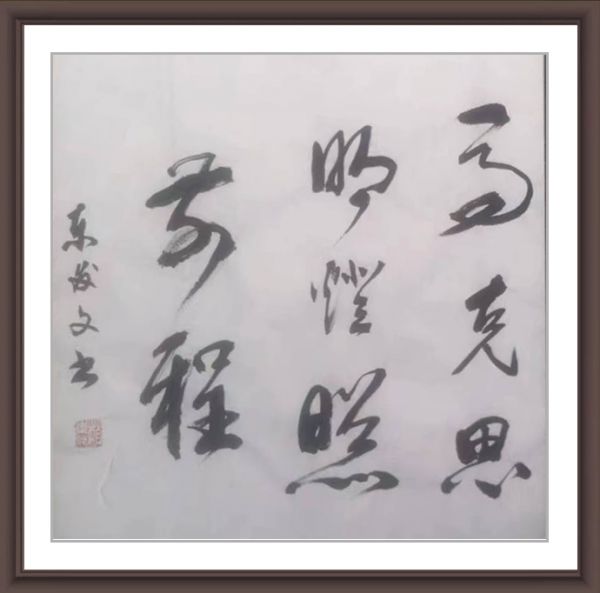 马克思
明燈照
前程
东发文书